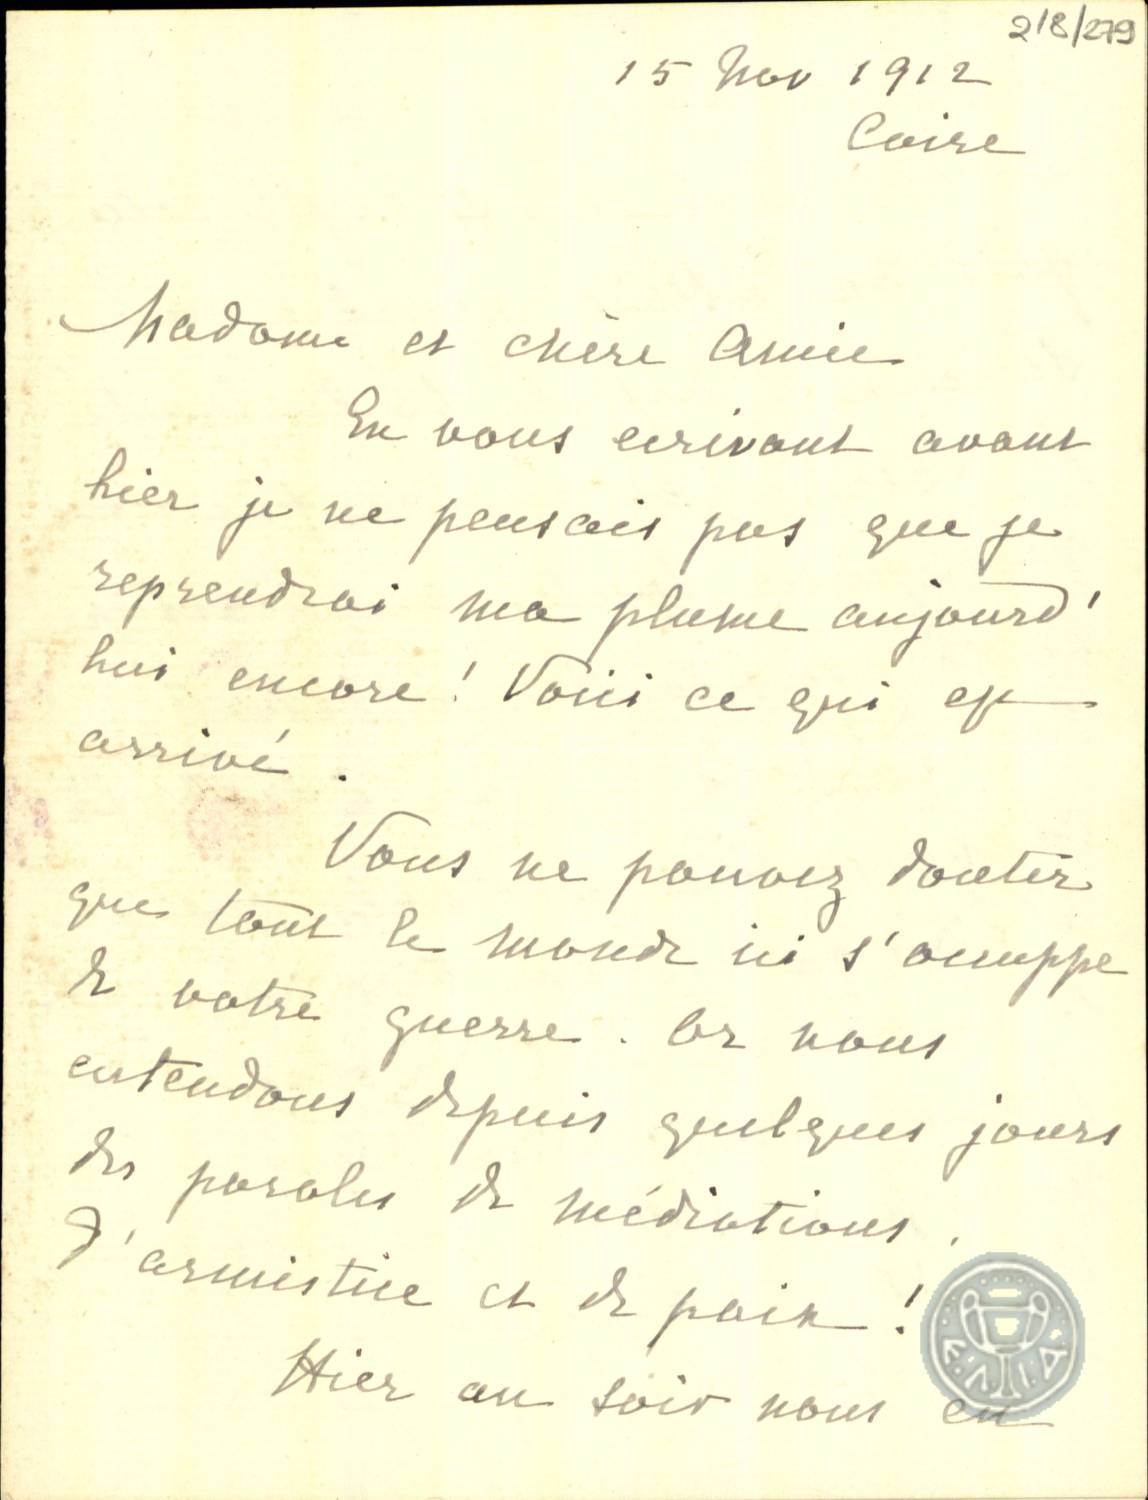 2/8/279
15 Nov 1912
Caire
Madame et chère Amie
En vous ecrivant avant
hier je ne pensais pas que je
reprendrai ma plume aujourd'
hui encore! Voici ce qui est
arrivé.
Vous ne pouvez douter
que tout le monde ici s'occuppe
de votre guerre. Or nous
entendons depuis quelques jours
des paroles de médiations,
d'armistice et de paix!
Hier au soir nous en
Ε.Λ.Ι.Α